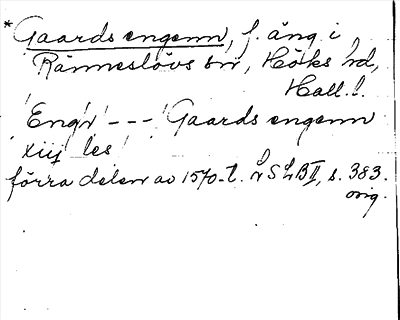 * Gaards engenn, f. äng i
Ränneslövs sn, Höks hd,
Hall. l.
'Engn' --- 'Gaards engenn
xiij les'
förra delen av 1570-t. LSLBII, s. 383.
orig.